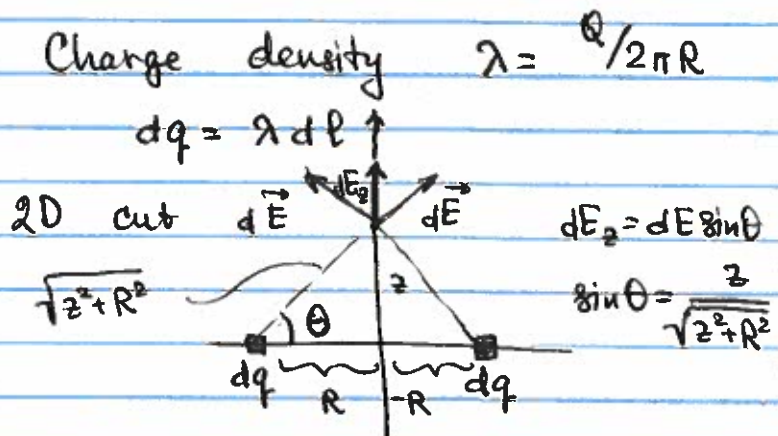 Charge density λ = Q/2πR
dq = λ dl
2D cut dE⃗ dE_z dE⃗ dE_z = dE sinθ
√z²+R² z sinθ = z/√z²+R²
θ
dq R -R dq